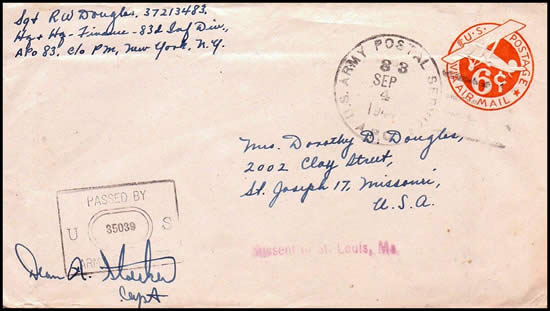 Sgt R W Douglas, 37213483.
Hq + Hq - Finance - 83d Inf Div.,
APO 83, c/o PM, New York, N.Y.
U.S. ARMY POSTAL SERVICE
83
SEP
4
U.S. POSTAGE
6¢
VIA AIR MAIL
Mrs. Dorothy D. Douglas,
2002 Clay Street,
St. Joseph 17, Missouri,
U.S.A.
PASSED BY
U 35039 S
ARMY
Missent to St. Louis, Mo.
Dean A.
Capt